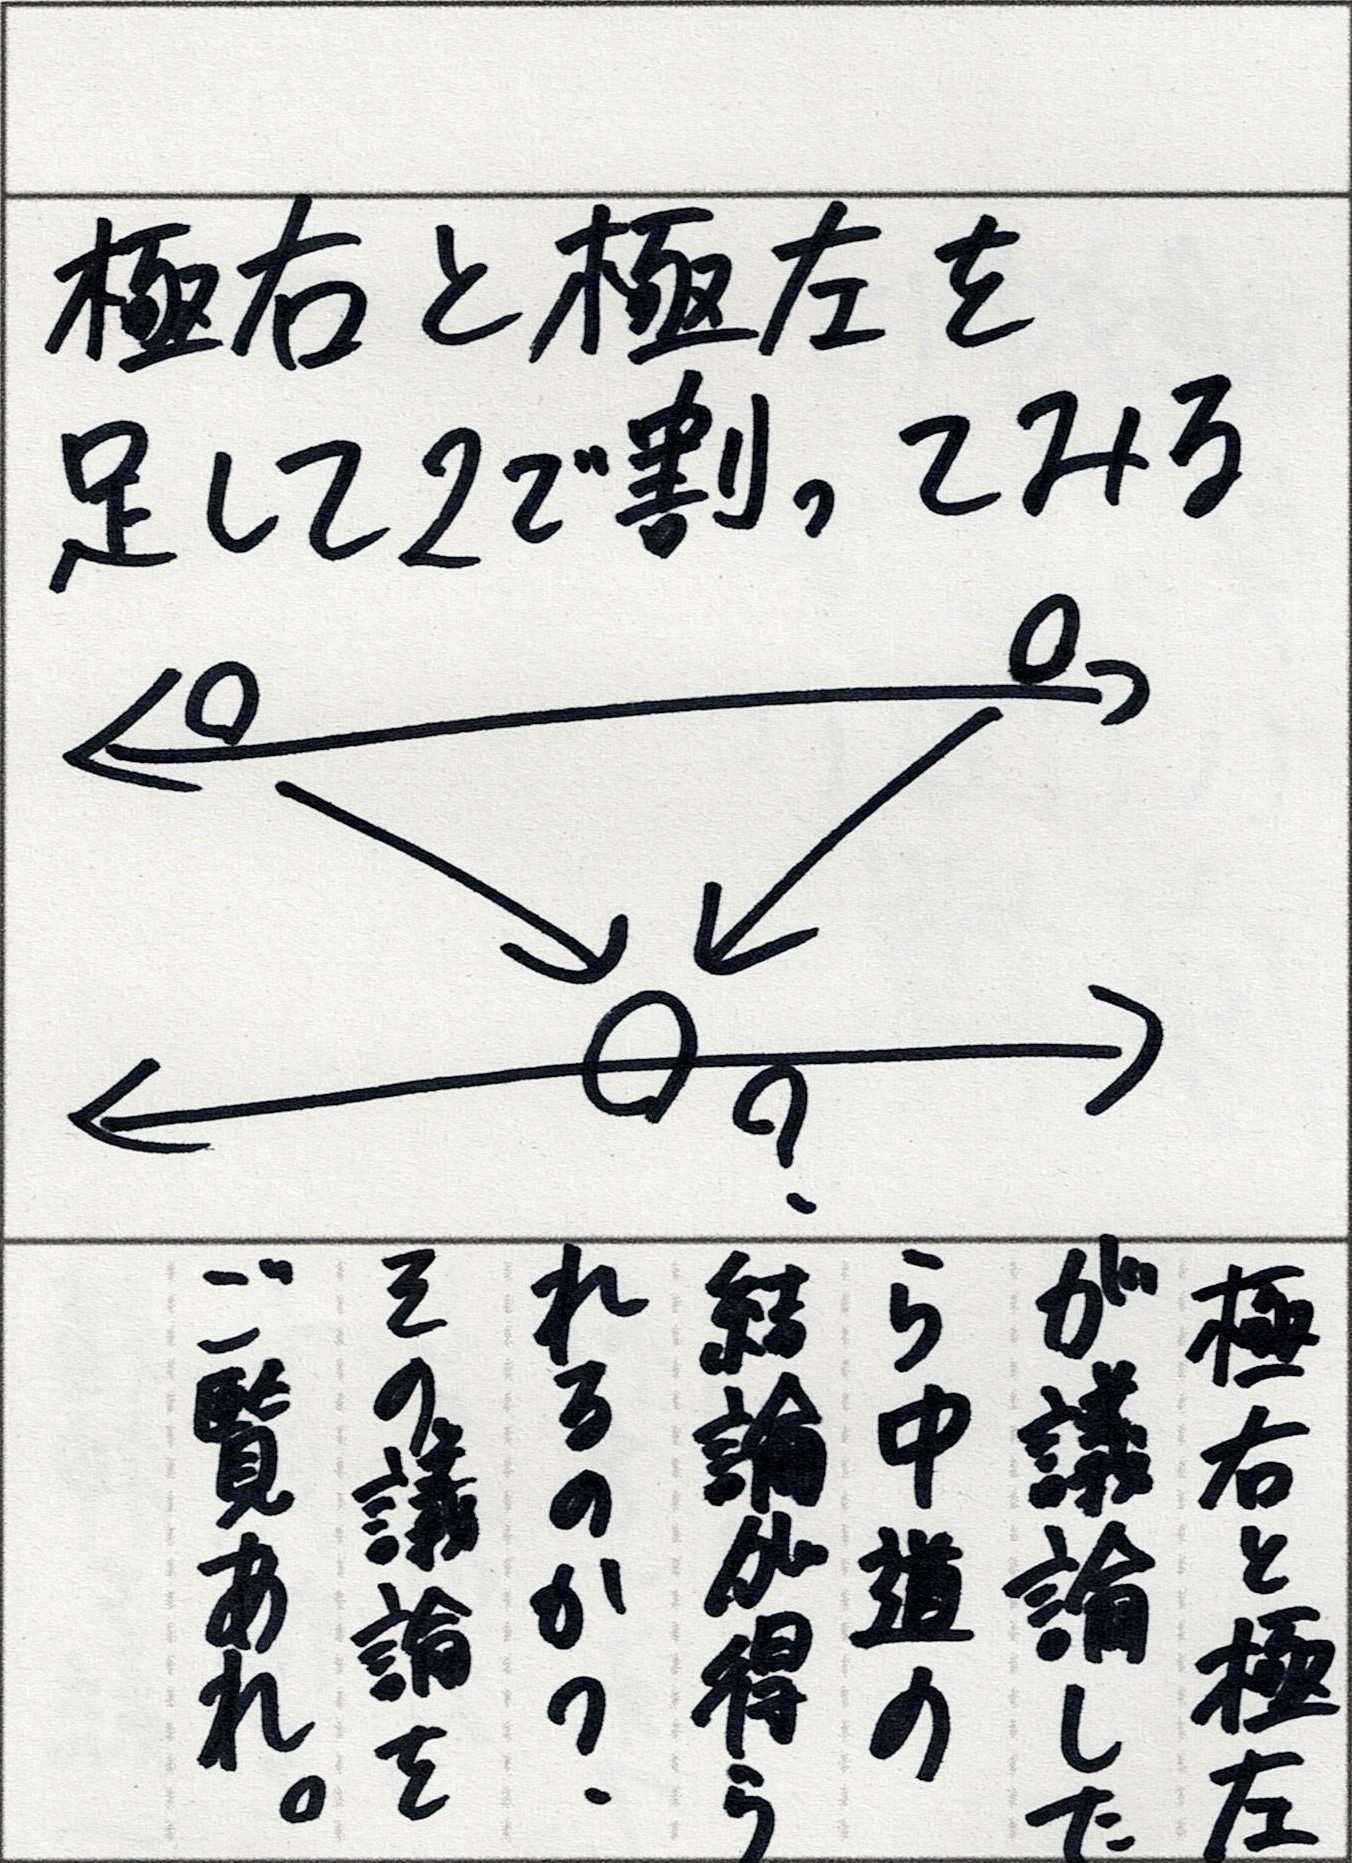 極右と極左を
足して2で割ってみる
?
極右と極左
が議論した
ら中道の
結論が得ら
れるのか?
その議論を
ご覧あれ。